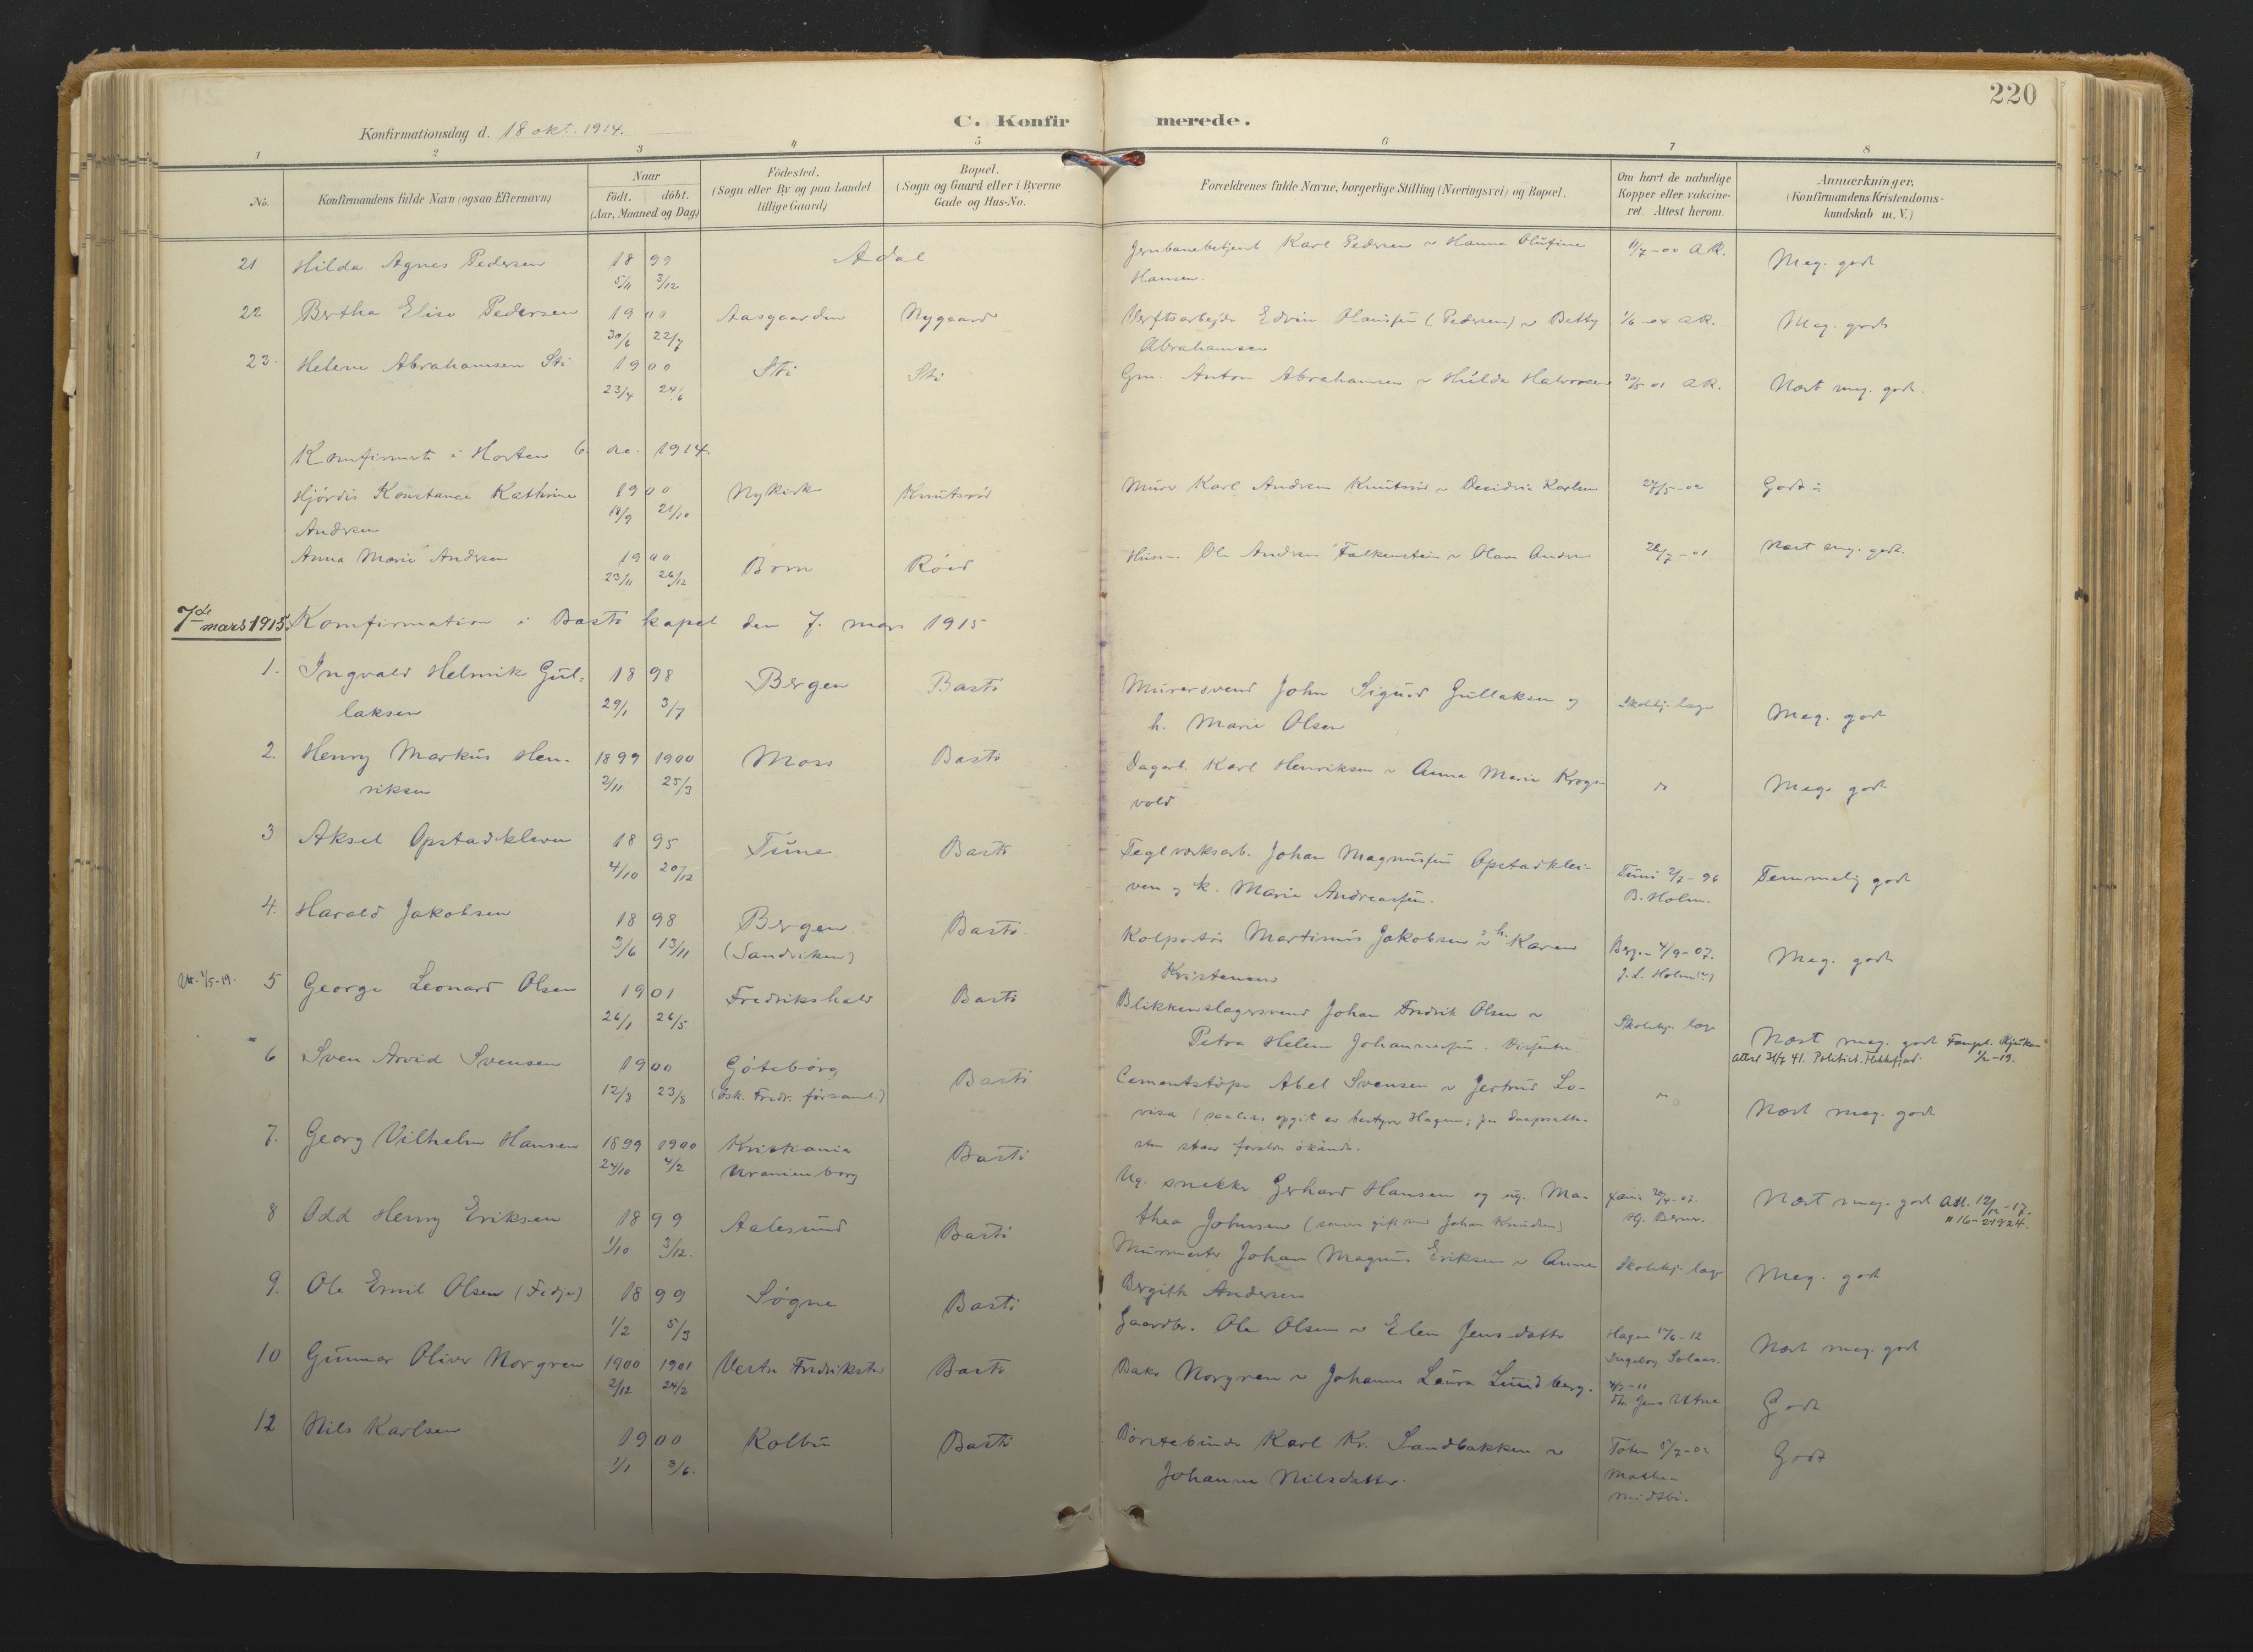 220
Konfirmationsdag d. 18 okt. 1914.
C. Konfirmerede.
1 2 3 4 5 6 7 8
No.
Konfirmandens fulde Navn (ogsaa Efternavn)
Naar
födt. döbt.
(Aar, Maaned og Dag)
Födested.
(Sogn eller By og paa Landet
tillige Gaard)
Bopæl.
(Sogn og Gaard eller i Byerne
Gade og Hus-No.
Forældrenes fulde Navne, borgerlige Stilling (Næringsvei) og Bopæl.
Om havt de naturlige
Kopper eller vakcine-
ret. Attest herom.
Anmærkninger.
(Konfirmandens Kristendoms-
kundskab m. V.)
21 Hilda Agnes Pedersen 1899 5/11 3/12 Adal Jernbanebetjent Karl Pedersen & Hanna Olufine
Hansen. 11/7-00 AR. Meg. godt
22 Bertha Elise Pedersen 1900 30/6 22/7 Aasgaarden Nygaard Verftsarbejder Edvin (Pedersen) & Betty
Abrahamsen 1/6-04 AR. Meg. godt
23. Helene Abrahamsen Sti 1900 23/4 24/6 Sti Sti Gm. Anton Abrahamsen & Hulda Halvorsen 30/5-01 AR. Næst meg. godt.
Komfirmert i Horten 6. de. 1914.
Hjördis Konstance Kathrine
Andersen 1900 18/9 21/10 Nykirke Knutsrød Murer Karl Andersen Knutsrød & Desideria Karlsen 27/5-02 Godt
Anna Marie Andersen 1900 23/11 26/12 Borre Röed Ole Andersen Falkensten & Olava Andersen 26/7-01 Næst meg. godt.
7de mars 1915. Komfirmation i Bastö kapel den 7. mars 1915
1. Ingvald Helmik Gul-
laksen 1898 29/1 3/7 Bergen Bastö Murersvend John Sigurd Gullaksen og
h. Marie Olsen Skolebj. læge Meg. godt
2. Henry Markus Hen-
riksen 1899 1900 2/11 25/3 Moss Bastö Dagarb. Karl Henriksen & Anna Marie Krogs-
vold do Meg. godt
3 Aksel Opstadkleven 1895 4/10 20/12 Tune Bastö Teglverksarb. Johan Magnussen Opstadklei-
ven og k. Marie Andreassen. Tune 2/7-96
B. Holm. Temmelig godt
4. Harald Jakobsen 1898 3/6 13/11 Bergen
(Sandviken) Bastö Kolportør Martinus Jakobsen & h. Karen
Kristensen Bergen 4/9-07.
J. L. Holm(?) Meg. godt
Utt. 1/5-19. 5 George Leonard Olsen 1901 26/1 26/5 Fredrikshald Bastö Blikkenslagersvend Johan Fredrik Olsen &
Petra Helene Johannessen. Dissenter Skolebj. læge Næst meg. godt Fængsl. Rjukan
1/2-19.
attest 31/7 41. Politiet. Flekkefjord.
6 Sven Arvid Svensen 1900 12/3 23/8 Göteborg
(Osk. Fredr. församl.) Bastö Cementstöper Abel Svensen & Jertrud Lo-
visa (saaledes opgit av bestyrer Hagen; paa daapsatte-
sten staar foreldre okända. do Næst meg. godt
7. Georg Vilhelm Hansen 1899 1900 24/10 4/2 Kristiania
Uranienborg Bastö Ug. snekker Gerhard Hansen og ug. Ma-
thea Johnsen (senere gift med Johan Knudsen) Xania 20/4-07. Næst meg. godt Att. 12/12-17.
" 16-21924.
8 Odd Henry Eriksen 1899 1/10 3/12. Aalesund Bastö Murmester Johan Magnus Eriksen & Anne
Bergith Andersen Skolebj. læge Meg. godt
9. Ole Emil Olsen (Fidje) 1899 1/2 5/3 Søgne Bastö Gaardbr. Ole Olsen & Elen Jensdatter Hagen 17/6-12
Ingeborg Solaas. Næst meg. godt
10 Gunnar Oliver Norgren 1900 1901 2/12 24/2 Vestre Fredrikstad Bastö Baker Norgren & Johanne Laura Lundberg. 4/3-11
Dr. Jens Utne Godt
12 Nils Karlsen 1900 1/1 3/6. Kolbu Bastö Børstebinder Karl Kr. Sandbakken &
Johanne Nilsdatter. Toten 5/7-02
Mathea
Midtbö. Godt